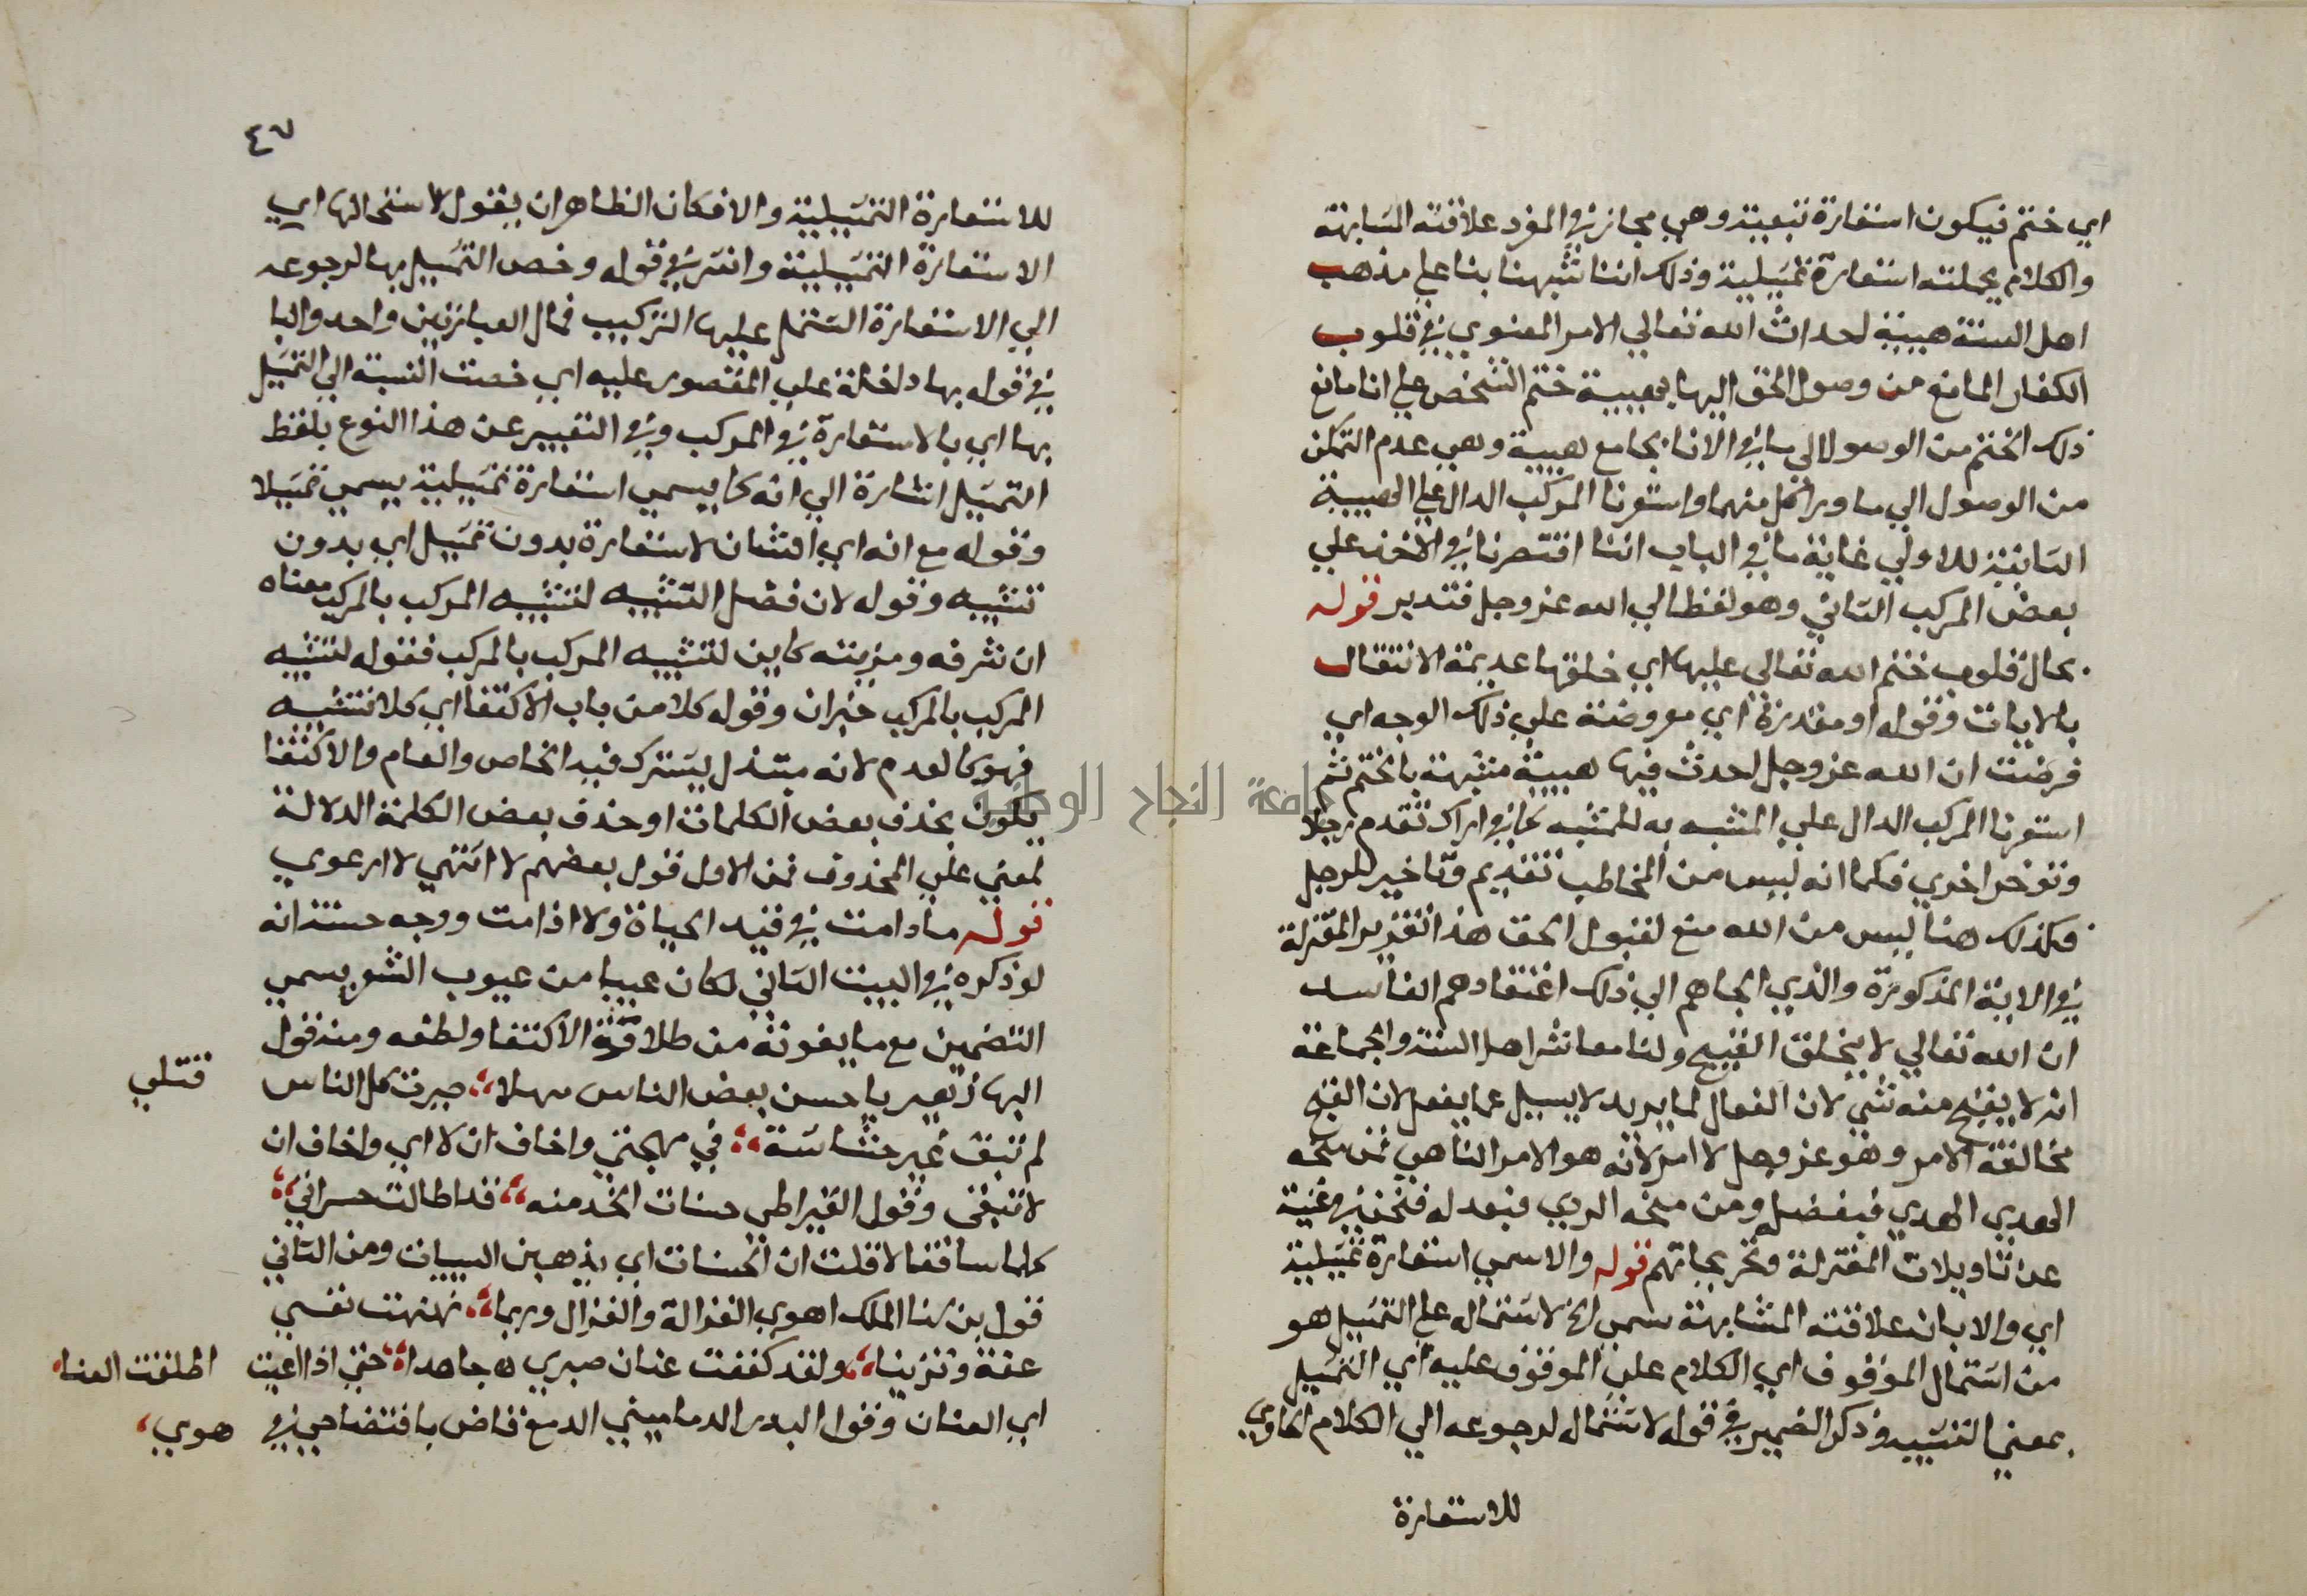 اي ختم فيكون استعارة تبعية وهي مجاز في المفرد علاقته المشابهة
والكلام بجملته استعارة تمثيلية وذلك اننا شبهنا بنا علي مذهب
اهل السنة هيئة احداث الله تعالي الامر المعنوي في قلوب
الكفار المانع من وصول الحق اليها بهيئة ختم الشخص علي انا مانع
ذلك الختم من الوصول الي ما في الانا بجامع هيئة وهي عدم التمكن
من الوصول الي ما ورا كل منهما واستعرنا المركب الدال علي الهيئة
الثانية للاولي غاية ما في الباب اننا اقتصرنا في الاخذ علي
بعض المركب الثاني وهو لفظ الي الله عز وجل فتدبر قوله
بحال قلوب ختم الله تعالي عليها اي خلقها عديمة الانتقال
بالايات وقوله او مقدرة اي مفروضة علي ذلك الوجه اي
فرضت ان الله عز وجل احدث فيها هيئة شبيهة بالختم ثم
استعرنا المركب الدال علي المشبه به للمشبه كما في اراك تقدم رجلا
وتوخر اخري فكما انه ليس من المخاطب تقديم وتاخير للرجل
فكذلك هنا ليس من الله منع لقبول الحق هذا تقرير المعتزلة
في الاية المذكورة والذي الجاهم الي ذلك اعتقادهم الفاسد
ان الله تعالي لا يخلق القبيح ولنا معاشر اهل السنة والجماعة
انه لا يقبح منه شي لان الفعال لما يريد لا يسيل عما يفعل لان القبح
مخالفة الامر وهو عز وجل لا امر لانه هو الامر الناهي فمن منحه
الهدي الهدي فبفضله ومن منحه الردي فبعدله فنحن في غنية
عن تاويلات المعتزلة وتخريجاتهم قوله والاسمي استعارة تمثيلية
اي والا بان علاقته المشابهة سمي الخ لاشتماله علي التمثيل هو
من اشتمال الموقوف اي الكلام علي الموقوف عليه اي التمثيل
بمعني التشبيه وذكر الضمير في قوله لاشتماله لرجوعه الي الكلام الحاوي
للاستعارة
٤٧
للاستعارة التمثيلية والا فكان الظاهر ان يقول لاشتمالها اي
الاستعارة التمثيلية وانث في قوله وخص التمثيل بها لرجوعه
الي الاستعارة المشتمل عليها التركيب فمال العبارتين واحد والبا
في قوله بها داخلة علي المقصور عليه اي خصت النسبة الي التمثيل
بها اي بالاستعارة في المركب وفي التعبير عن هذا النوع بلفظ
التمثيل اشارة الي انه كما يسمي استعارة تمثيلية يسمي تمثيلا
وقوله مع انه اي الشان لا استعارة بدون تمثيل اي بدون
تشبيه وقوله لان فضل التشبيه لتشبيه المركب بالمركب معناه
ان شرفه ومزيته كاين لتشبيه المركب بالمركب فقوله لتشبيه
المركب بالمركب خبر ان وقوله كلا من باب الاكتفا اي كلا تشبيه
فهو كالعدم لانه مبتذل يشترك فيه الخاص والعام والاكتفا
يكون بحذف بعض الكلمات او حذف بعض الكلمة الدلالة
لمعني علي المحذوف فمن الاول قول بعضهم لا انتهي لا ارعوي
قوله ما دامت في قيد الحياة ولا اذا مت ووجه حسنه انه
لو ذكره في البيت الثاني لكان عيبا من عيوب الشعر يسمي
التضمين مع ما يفوته من طلاقة الاكتفا ولطفه ومنه قول
البهازهير يا حسن بعض الناس مهلا ، صيرت كل الناس قتلي
لم تبق غير حشاشة ، في مهجتي واخاف ان لا اي واخاف ان
لا تبقي وقول القيراطي حسنات الخد منه ، قد اطالت حسراتي ،
كلما سا فعالا قلت ان الحسنات اي يذهبن السييات ومن الثاني
قول بن سنا الملك اهوي الغزالة والغزال وربما ، نهنهت نفسي
عفة وتدينا ، ولقد كففت عنان صبري جاهدا ، حتي اذا اعييت اطلقت العنا ،
اي العنان وقول البدر الدماميني الدمع قاض بافتضاحي في هوي ،
جامعة النجاح الوطنية